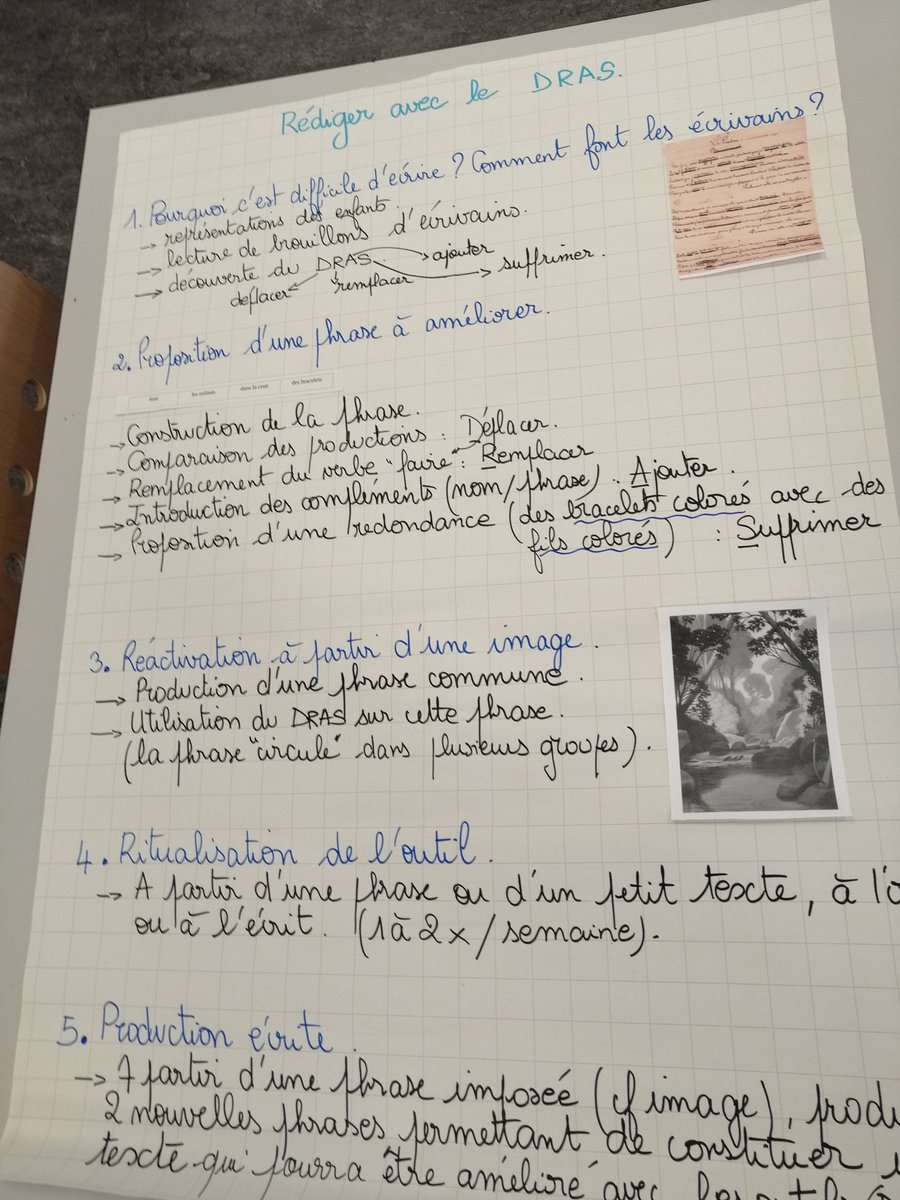 Rédiger avec le DRAS.
1. Pourquoi c'est difficile d'écrire ? Comment font les écrivains ?
→ représentations des enfants.
→ lecture de brouillons d'écrivains.
→ découverte du DRAS
ajouter
supprimer.
déplacer
remplacer
2. Proposition d'une phrase à améliorer.
font les enfants dans la cour des bracelets
→ Construction de la phrase.
→ Comparaison des productions : Déplacer.
→ Remplacement du verbe "faire" : Remplacer
→ Introduction des compléments (nom/phrase). Ajouter.
→ Proposition d'une redondance (des bracelets colorés avec des
fils colorés) : Supprimer
3. Réactivation à partir d'une image.
→ Production d'une phrase commune.
→ Utilisation du DRAS sur cette phrase.
(la phrase "circule" dans plusieurs groupes).
4. Ritualisation de l'outil.
→ A partir d'une phrase ou d'un petit texte, à l'o
ou à l'écrit. (1 à 2 x / semaine).
5. Production écrite.
→ A partir d'une phrase imposée (cf image), produ
2 nouvelles phrases permettant de constituer
texte qui pourra être amélioré avec